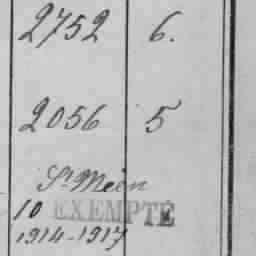 2752 6.
2056 5
St Méen
10 EXEMPTÉ
1914-1917